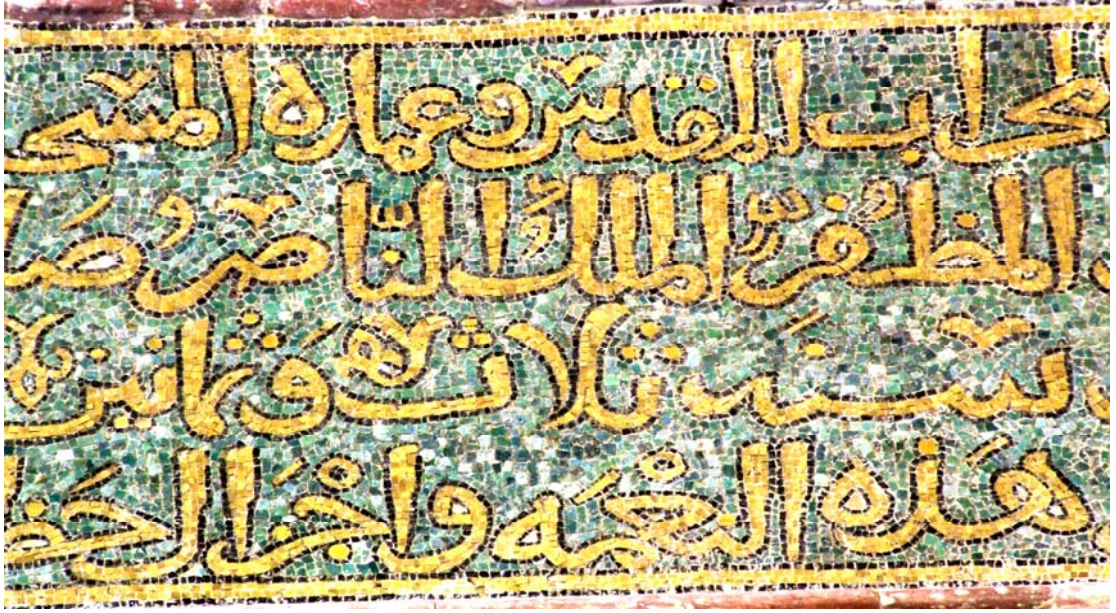 المحراب المقدس وعماره المسجد
المظفر الملك الناصر
سنه ثلاث وثمانين
هذه النعمه واجزال